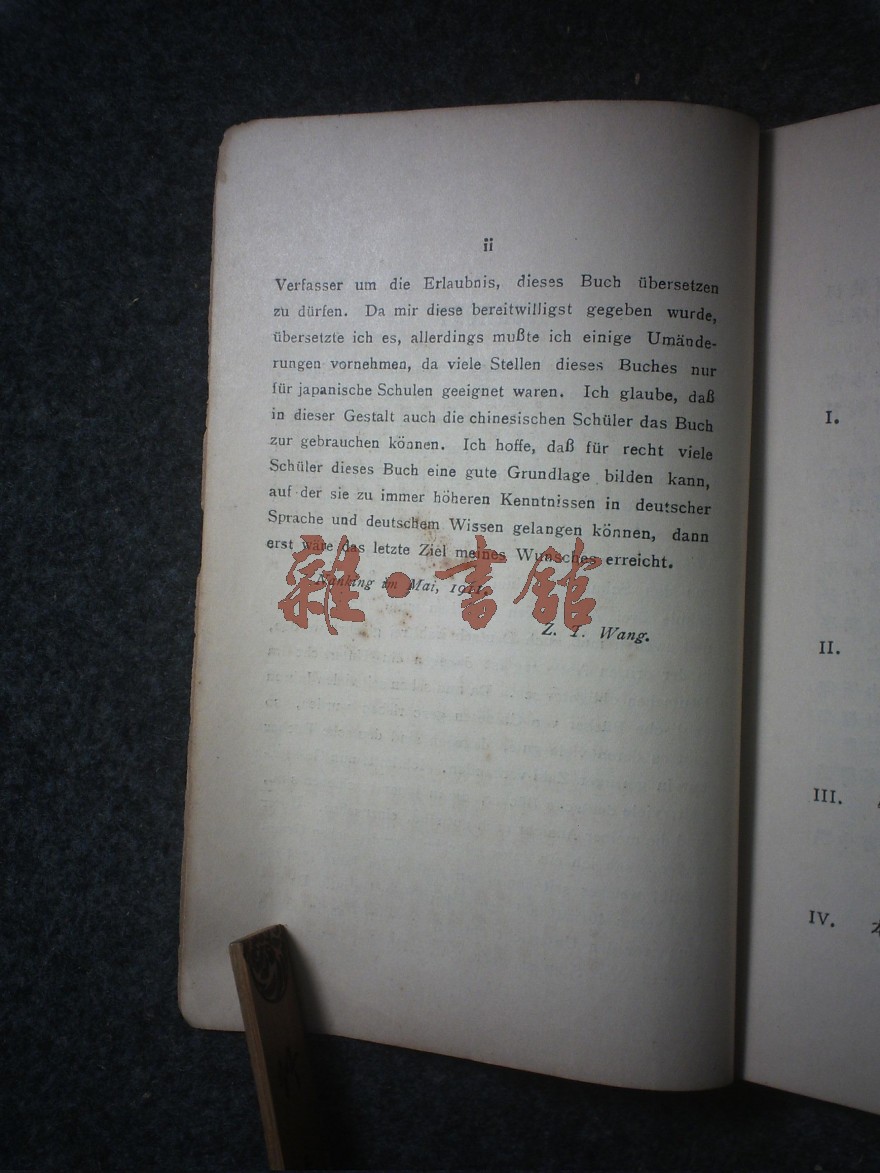 ii
Verfasser um die Erlaubnis, dieses Buch übersetzen
zu dürfen. Da mir diese bereitwilligst gegeben wurde,
übersetzte ich es, allerdings mußte ich einige Umände-
rungen vornehmen, da viele Stellen dieses Buches nur
für japanische Schulen geeignet waren. Ich glaube, daß
in dieser Gestalt auch die chinesischen Schüler das Buch
zur gebrauchen können. Ich hoffe, daß für recht viele
Schüler dieses Buch eine gute Grundlage bilden kann,
auf der sie zu immer höheren Kenntnissen in deutscher
Sprache und deutschem Wissen gelangen können, dann
erst wäre das letzte Ziel meines Wunsches erreicht.
Nanking im Mai, 1911.
Z. T. Wang.
雜·書館
I.
II.
III.
IV.